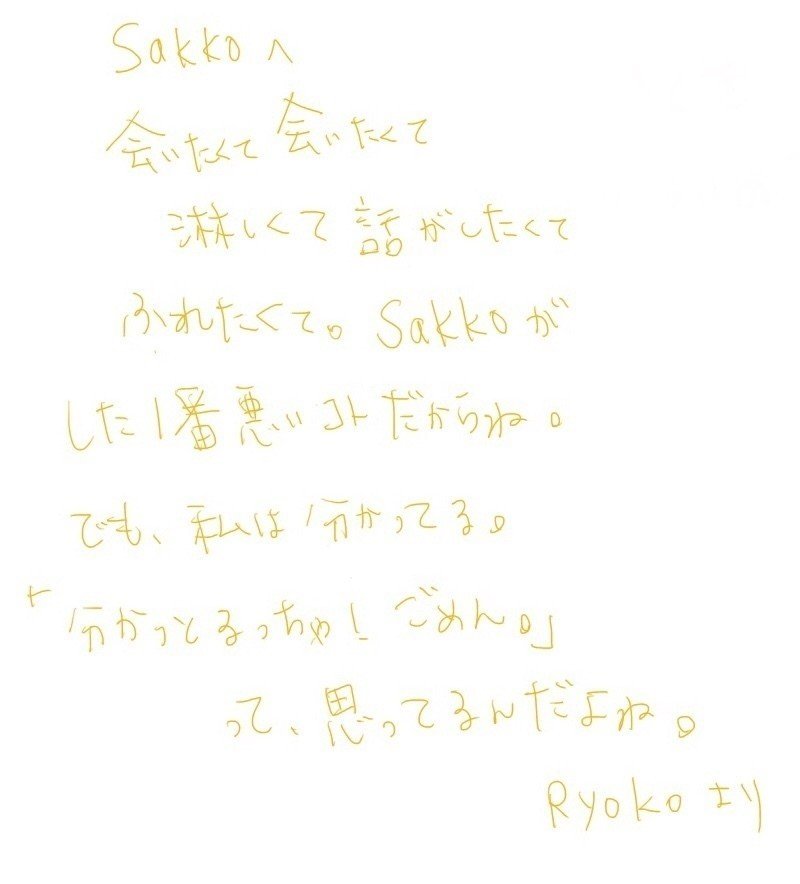 Sakkoへ
会いたくて会いたくて
淋しくて話がしたくて
ふれたくて。Sakkoが
した1番悪いコトだからね。
でも、私は分かってる。
「分かっとるっちゃ!ごめん。」
って、思ってるんだよね。
Ryokoより